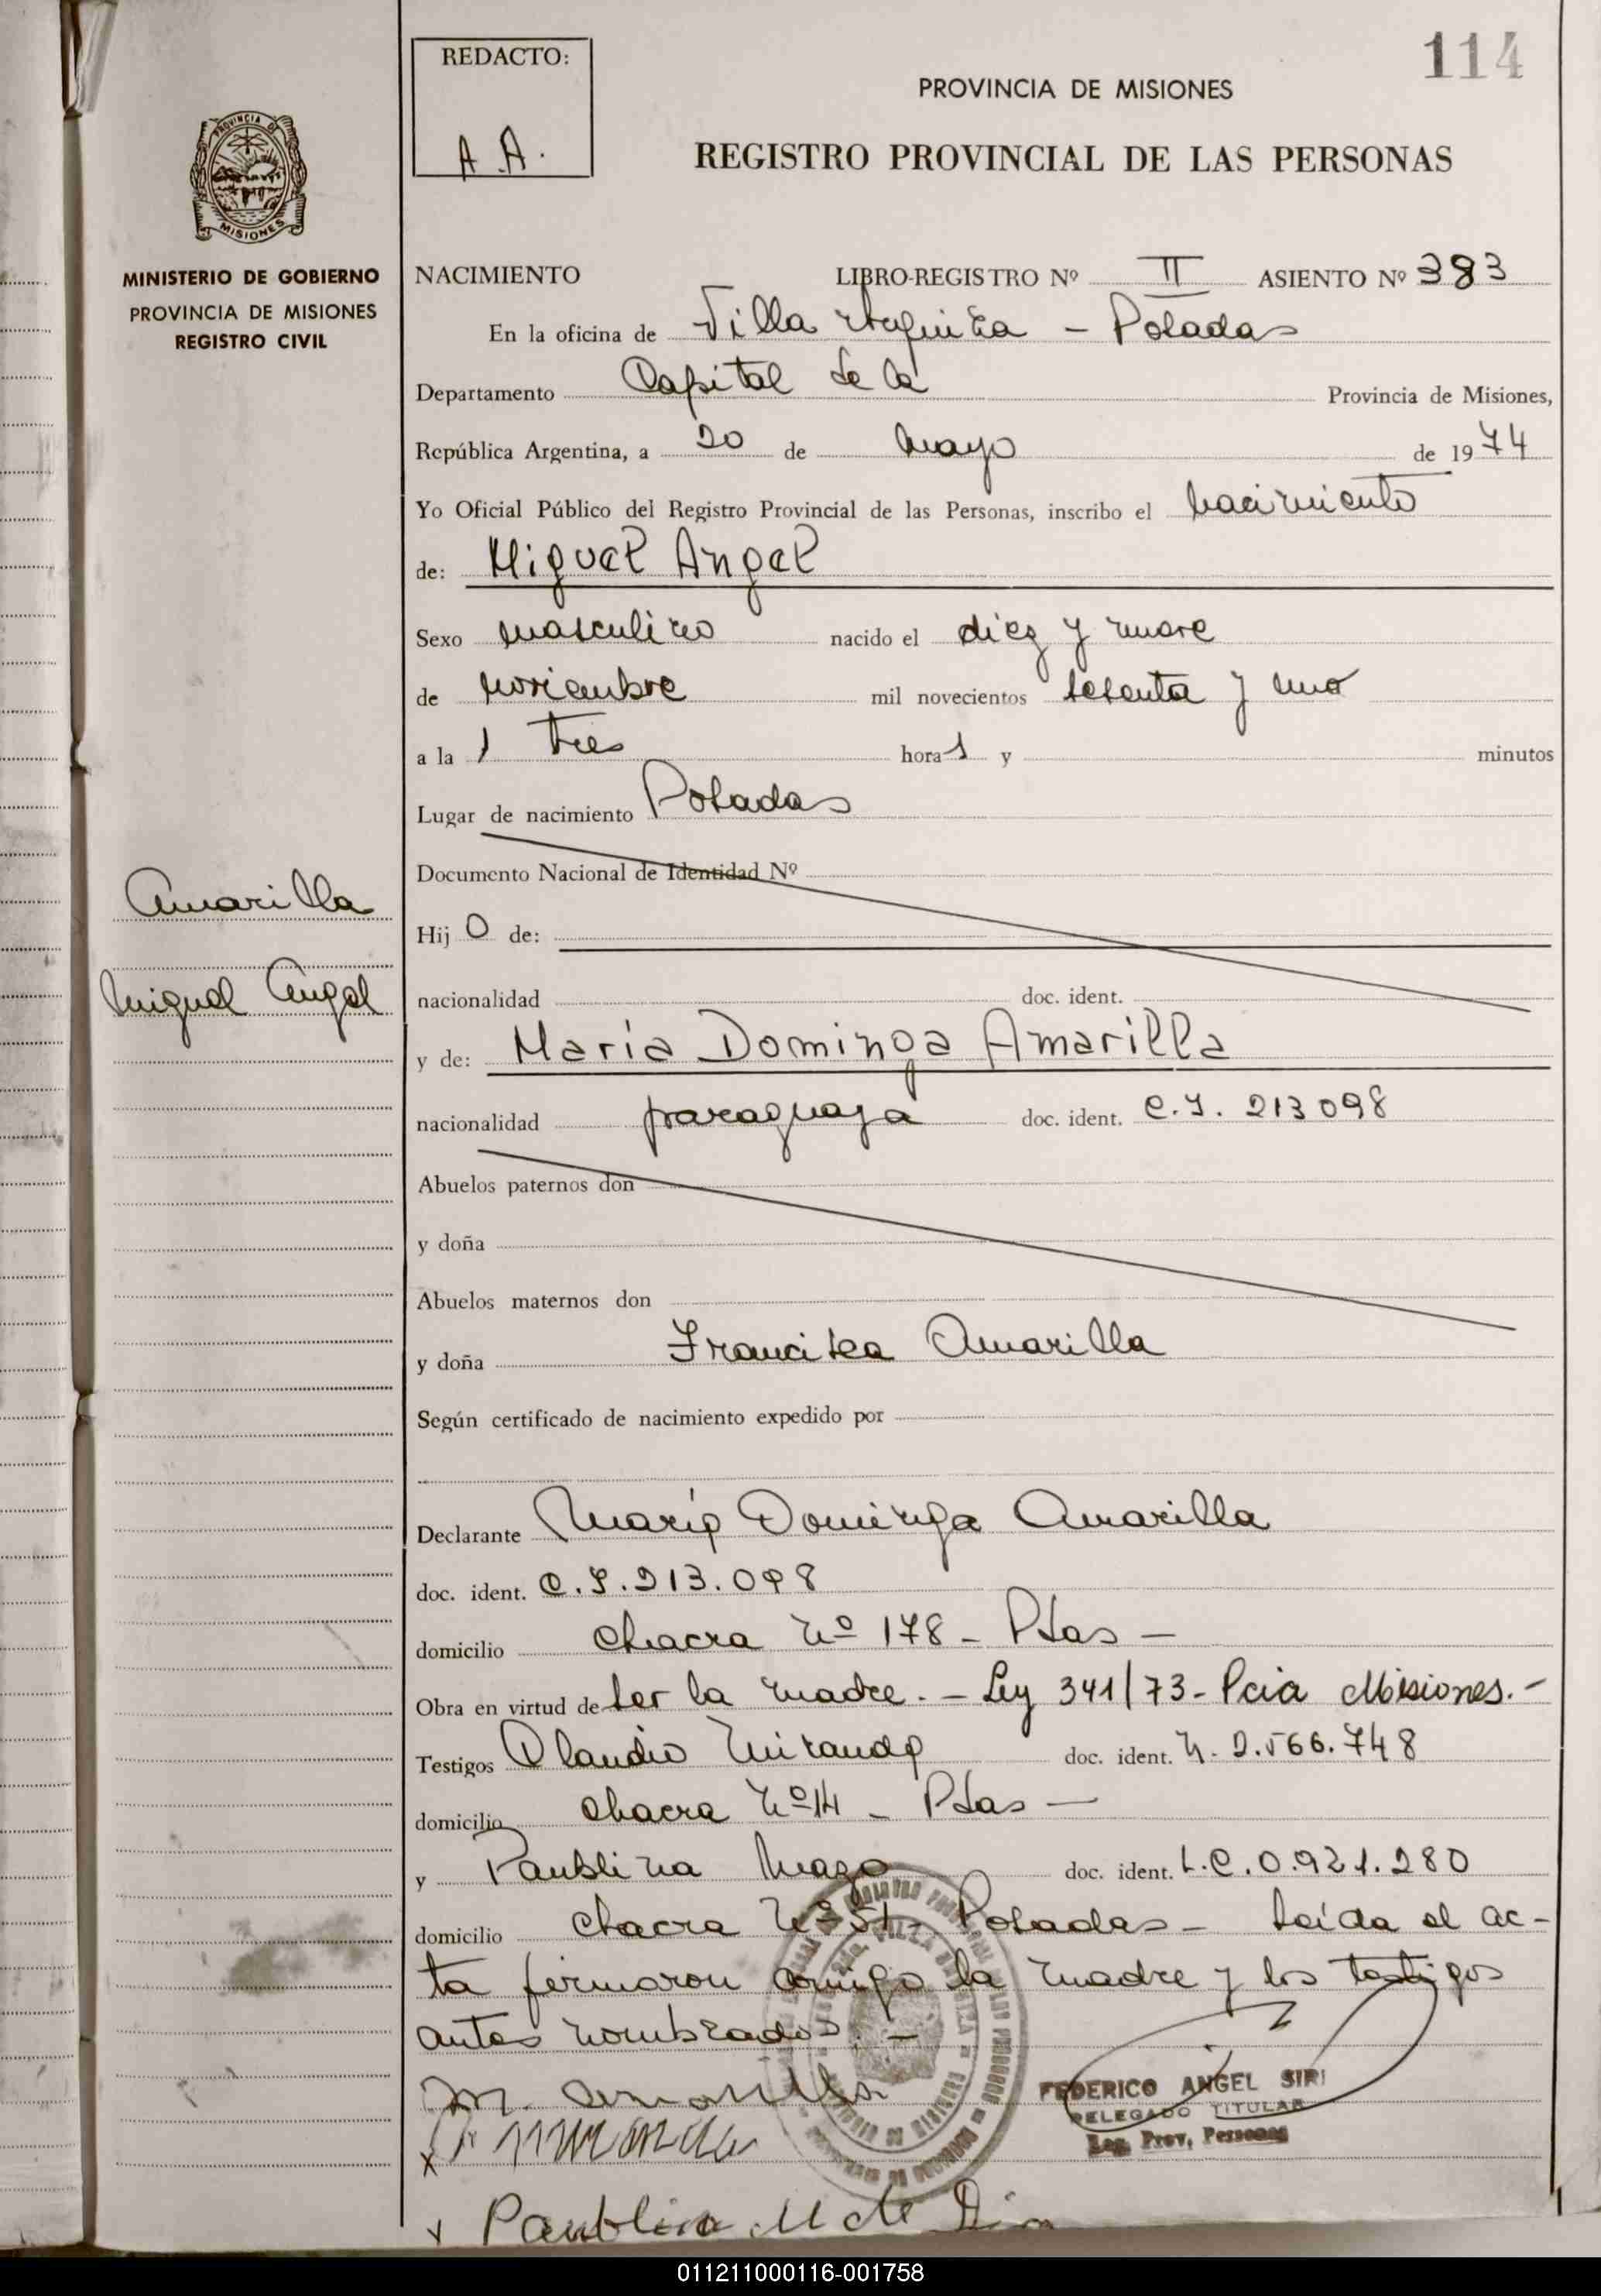 114
REDACTO:
A.A.
PROVINCIA DE MISIONES
REGISTRO PROVINCIAL DE LAS PERSONAS
PROVINCIA DE
MISIONES
MINISTERIO DE GOBIERNO
PROVINCIA DE MISIONES
REGISTRO CIVIL
NACIMIENTO LIBRO-REGISTRO Nº II ASIENTO Nº 383
En la oficina de Villa Urquiza - Posadas
Departamento Capital de la Provincia de Misiones,
República Argentina, a 20 de mayo de 1974
Yo Oficial Público del Registro Provincial de las Personas, inscribo el nacimiento
de: Miguel Angel
Sexo masculino nacido el diez y nueve
de noviembre mil novecientos sesenta y uno
a la s tres hora s y minutos
Lugar de nacimiento Posadas
Documento Nacional de Identidad Nº
Amarilla
Hij o de:
Miguel Angel
nacionalidad doc. ident.
y de: María Dominga Amarilla
nacionalidad paraguaya doc. ident. C.I. 213098
Abuelos paternos don
y doña
Abuelos maternos don
y doña Francisca Amarilla
Según certificado de nacimiento expedido por
Declarante María Dominga Amarilla
doc. ident. C.I. 213.098
domicilio chacra Nº 178 - Pdas -
Obra en virtud de ser la madre. - Ley 341/73 - Pcia Misiones. -
Testigos Claudio Miranda doc. ident. M. 2.566.748
domicilio chacra Nº 14 - Pdas -
y Paublina Meza doc. ident. L.C. 0.921.280
domicilio chacra Nº 51 - Posadas - Leída el ac-
ta firmaron conmigo la madre y los testigos
antes nombrados. -
M. Amarilla
FEDERICO ANGEL SIRI
DELEGADO TITULAR
Reg. Prov. Personas
x C Miranda
x Paublina M de
011211000116-001758